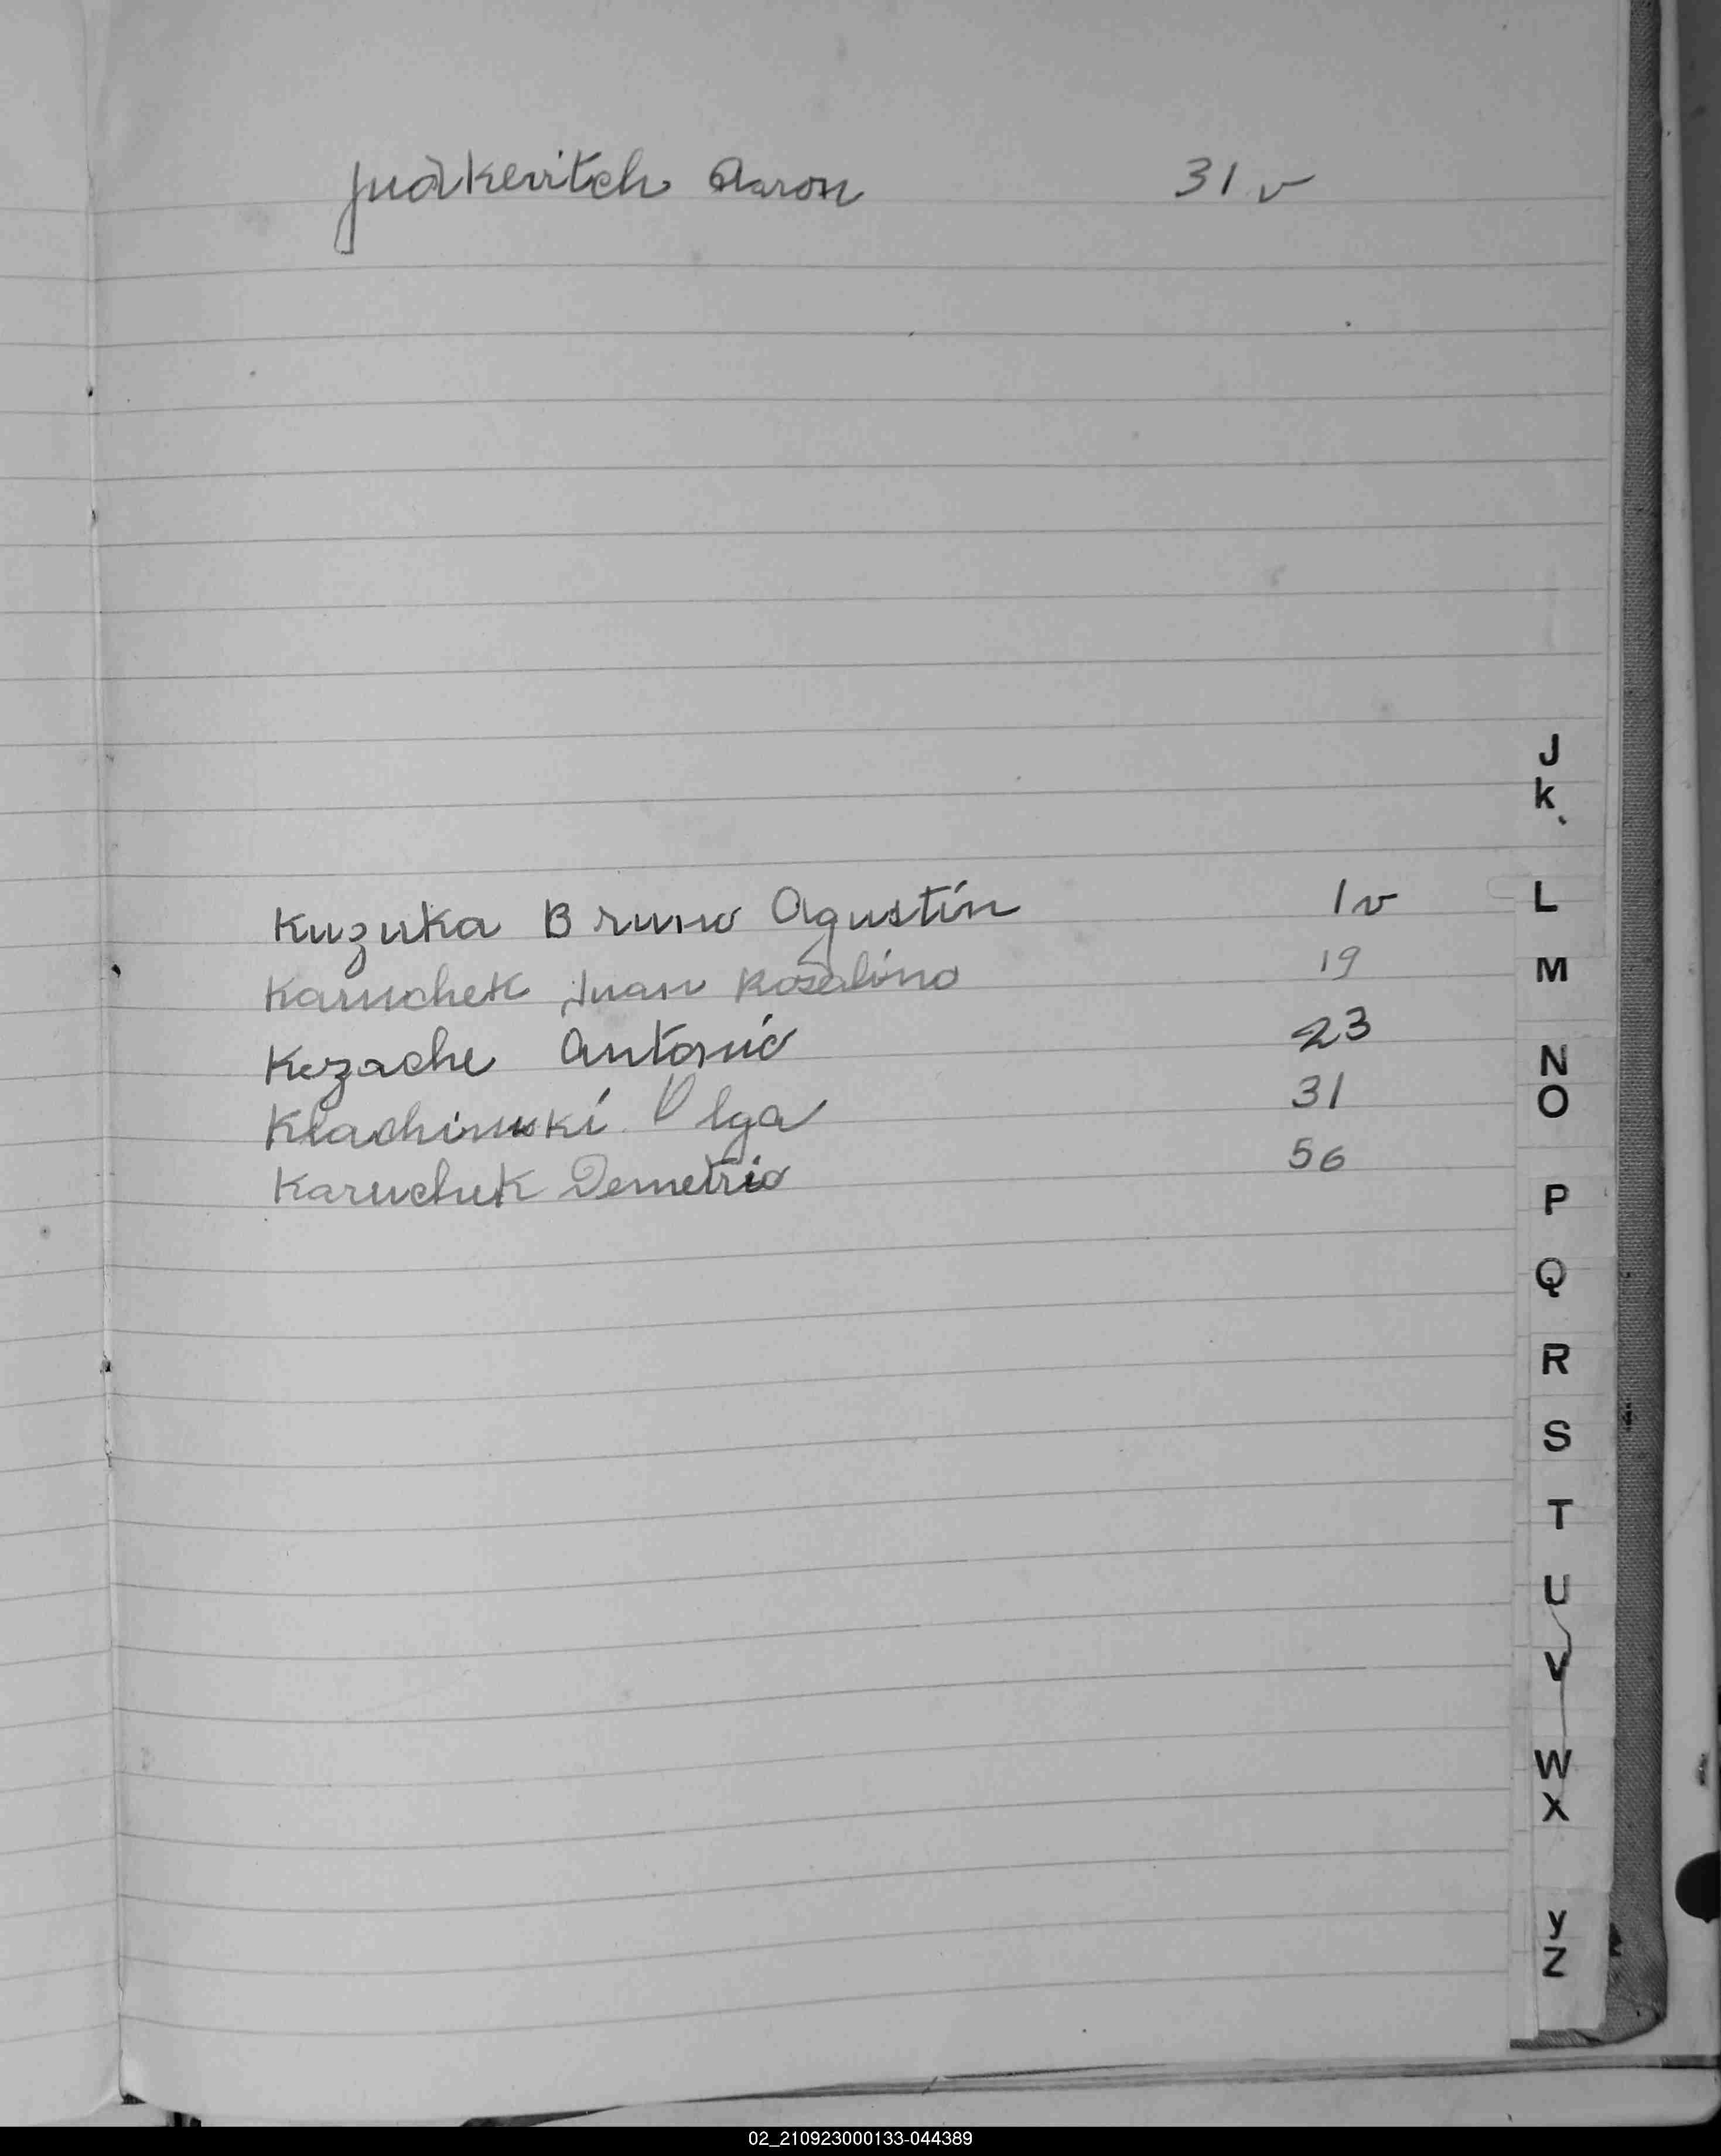 Judkevitch Aaron 31 v
J
K
Kuzuka Bruno Agustín 1v
L
Karuchek Juan Rosalino 19
M
Kozache Antonio 23
N
Klachinski Olga 31
O
Karuchek Demetrio 56
P
Q
R
S
T
U
V
W
X
Y
Z
02_210923000133-044389